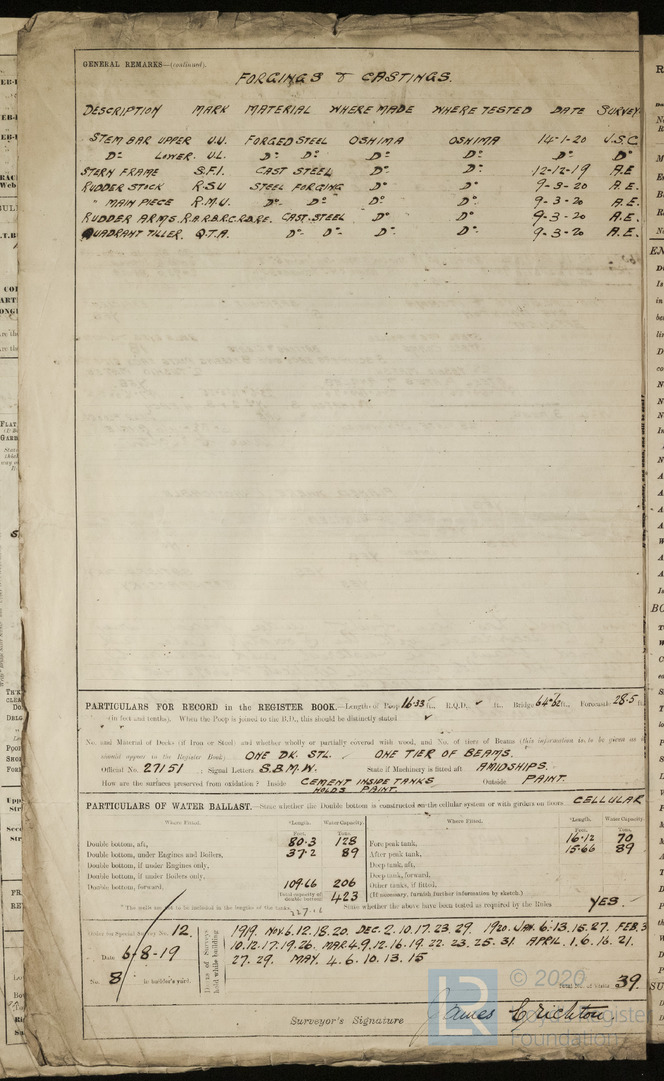 GENERAL REMARKS—(continued).
FORGINGS & CASTINGS.
DESCRIPTION MARK MATERIAL WHERE MADE WHERE TESTED DATE SURVEY
STEM BAR UPPER U.U. FORGED STEEL OSHIMA OSHIMA 14-1-20 J.S.C
Do LOWER. U.L. Do Do Do Do Do Do
STERN FRAME S.F.I. CAST STEEL Do Do 12-12-19 A.E
RUDDER STOCK R.S.U STEEL FORGING Do Do 9-3-20 A.E.
" MAIN PIECE R.M.U. Do Do Do Do 9-3-20 A.E.
RUDDER ARMS. R.A.R.B.R.C.R.D.R.E. CAST. STEEL Do Do 9-3-20 A.E.
QUADRANT TILLER. Q.T.A. Do Do Do Do 9-3-20 A.E.
PARTICULARS FOR RECORD in the REGISTER BOOK.—Length of Poop 16.33 ft., R.Q.D., ✓ ft., Bridge 64.62 ft., Forecastle 28.5 ft.
(in feet and tenths). When the Poop is joined to the B.D., this should be distinctly stated ✓
No. and Material of Decks (if Iron or Steel) and whether wholly or partially covered with wood, and No. of tiers of Beams (this information is to be given as it
should appear in the Register Book) ONE DK. STL. ONE TIER OF BEAMS.
Official No. 27151 ; Signal Letters S.B.M.W. State if Machinery is fitted aft AMIDSHIPS.
How are the surfaces preserved from oxidation? Inside CEMENT INSIDE TANKS Outside PAINT.
HOLDS PAINT.
PARTICULARS OF WATER BALLAST.—State whether the Double bottom is constructed on the cellular system or with girders on floors CELLULAR
Where Fitted. *Length. Water Capacity. Where Fitted. *Length. Water Capacity.
Feet. Tons. Feet. Tons.
Double bottom, aft, 80.3 128 Fore peak tank, 16.12 70
Double bottom, under Engines and Boilers, 37.2 89 After peak tank, 15.66 89
Double bottom, if under Engines only, Deep tank, aft,
Double bottom, if under Boilers only, Deep tank, forward,
Double bottom, forward, 109.66 206 Other tanks, if fitted,
Total capacity of double bottom 423 (If necessary, furnish further information by sketch.)
* The wells are not to be included in the lengths of the tanks. 227.16 State whether the above have been tested as required by the Rules YES.
Order for Special Survey No. 12.
Date 6-8-19
No. 8 in builder's yard.
Dates of Surveys held while building
1919. NOV. 6. 12. 18. 20. DEC. 2. 10. 17. 23. 29. 1920. JAN. 6. 13. 15. 27. FEB. 3
10. 12. 17. 19. 26. MAR. 4. 9. 12. 16. 19. 22. 23. 25. 31. APRIL. 1. 6. 16. 21.
27. 29. MAY. 4. 6. 10. 13. 15
Total No. of visits 39.
Surveyor's Signature James Crichton
© 2020
Lloyd's Register
Foundation